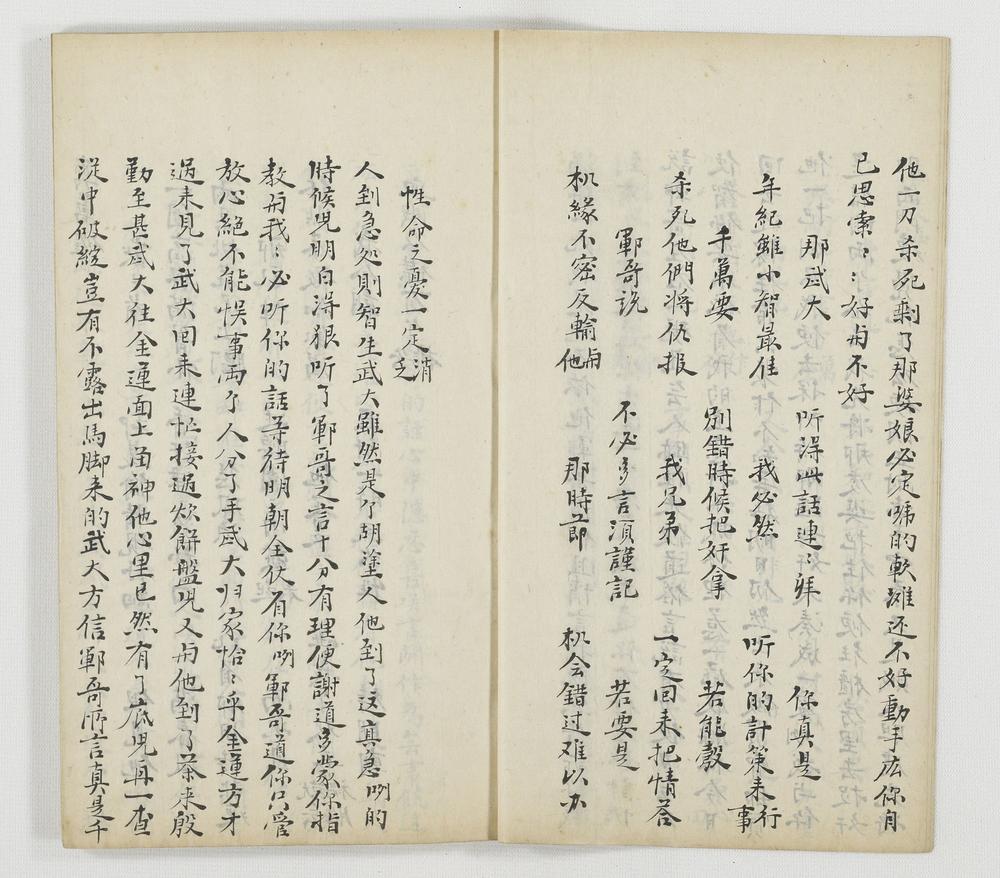 他一刀杀死剩了那婆娘必定唏的軟灘还不好動手庅你自
己思索〻〻好與不好
那武大　听得此話連〻拜　你真是
年紀雖小智最佳　我必然　听你的計策来行事
千萬要　別錯時候把奸拿　若能彀
杀死他們将仇报　我兄弟　一定回来把情荅
鄆哥説　不必多言須謹記　若要是
机緣不密反輸與他　那時節　机会錯过难以办
性命之憂一定消乏
人到急処則智生武大雖然是个胡塗人他到了这真急咧的
時候児明白淂狠听了鄆哥之言十分有理便謝道多蒙你指
教與我〻必听你的話等待明朝全仗着你咧鄆哥道你只管
放心絕不能悞事両个人分了手武大归家恰〻乎金蓮方才
过来見了武大回来連忙接過炊餅盤児又與他到了茶来殷
勤至甚武大往金蓮面上留神他心里已然有了底児再一查
從中破綻豈有不露出馬脚来的武大方信鄆哥所言真是千